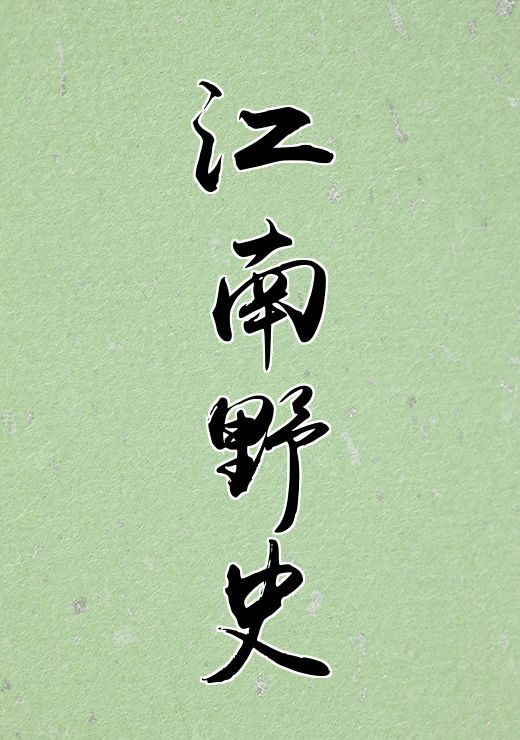 江南野史